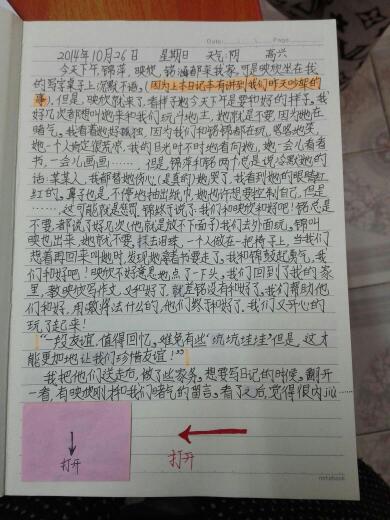 Date: Page
2014年10月26日 星期日 天气:阴 高兴
今天下午,锦萍,映欣,铭涵都来我家,可是映欣坐在我
的写字桌子上,沉默不语,(因为上本日记本有讲到我们昨天吵架的
事),但是,映欣就来了,看样子她今天下午是要和好的样子。我
好几次都想叫她来和我们玩斗地主,她就是不要,因为她在
赌气。我看着她好孤独,因为我们和铭锦都在玩,嘻嘻哈哈
她一个人肯定很荒凉,我的目光时不时地看向她,她一会儿看看
书,一会儿画画……但是,锦萍和铭两个总是说冷默她的
话,某某人,我都替她伤心(是真的)她哭了,我看到她的眼睛红
红的,鼻子也是,不停地抽出纸巾,她也许想要控制自己,但是
……这可能就是惩罚,锦终于说了,我们和映欣和好吧!铭总是
不要,都说了好几次(他就是放不下面子)我们去外面玩,锦叫
映也出来,她就不要,一个人做在一把椅子上,当我们
想着再回来叫她时,发现她拿着书要走了,我和锦鼓起勇气,我
们和好吧!映欣不好意思地点了一下头,我们回到了我的家
里,教映欣写作文,又和好了,就差铭没有和好了,我们帮助他
们和好,用数样法什么的,他们终于和好了,我们又开心的
玩了起来!
“一段友谊,值得回忆,难免有些“坑坑洼洼”但是,这才
能更把地让我们珍惜友谊!”
我把他们送走后,做了些家务,想要写日记的时候,翻开
一看,有映欣刚才和我们赌气的留言,看了之后,觉得很内疚……
打开
打开
notebook